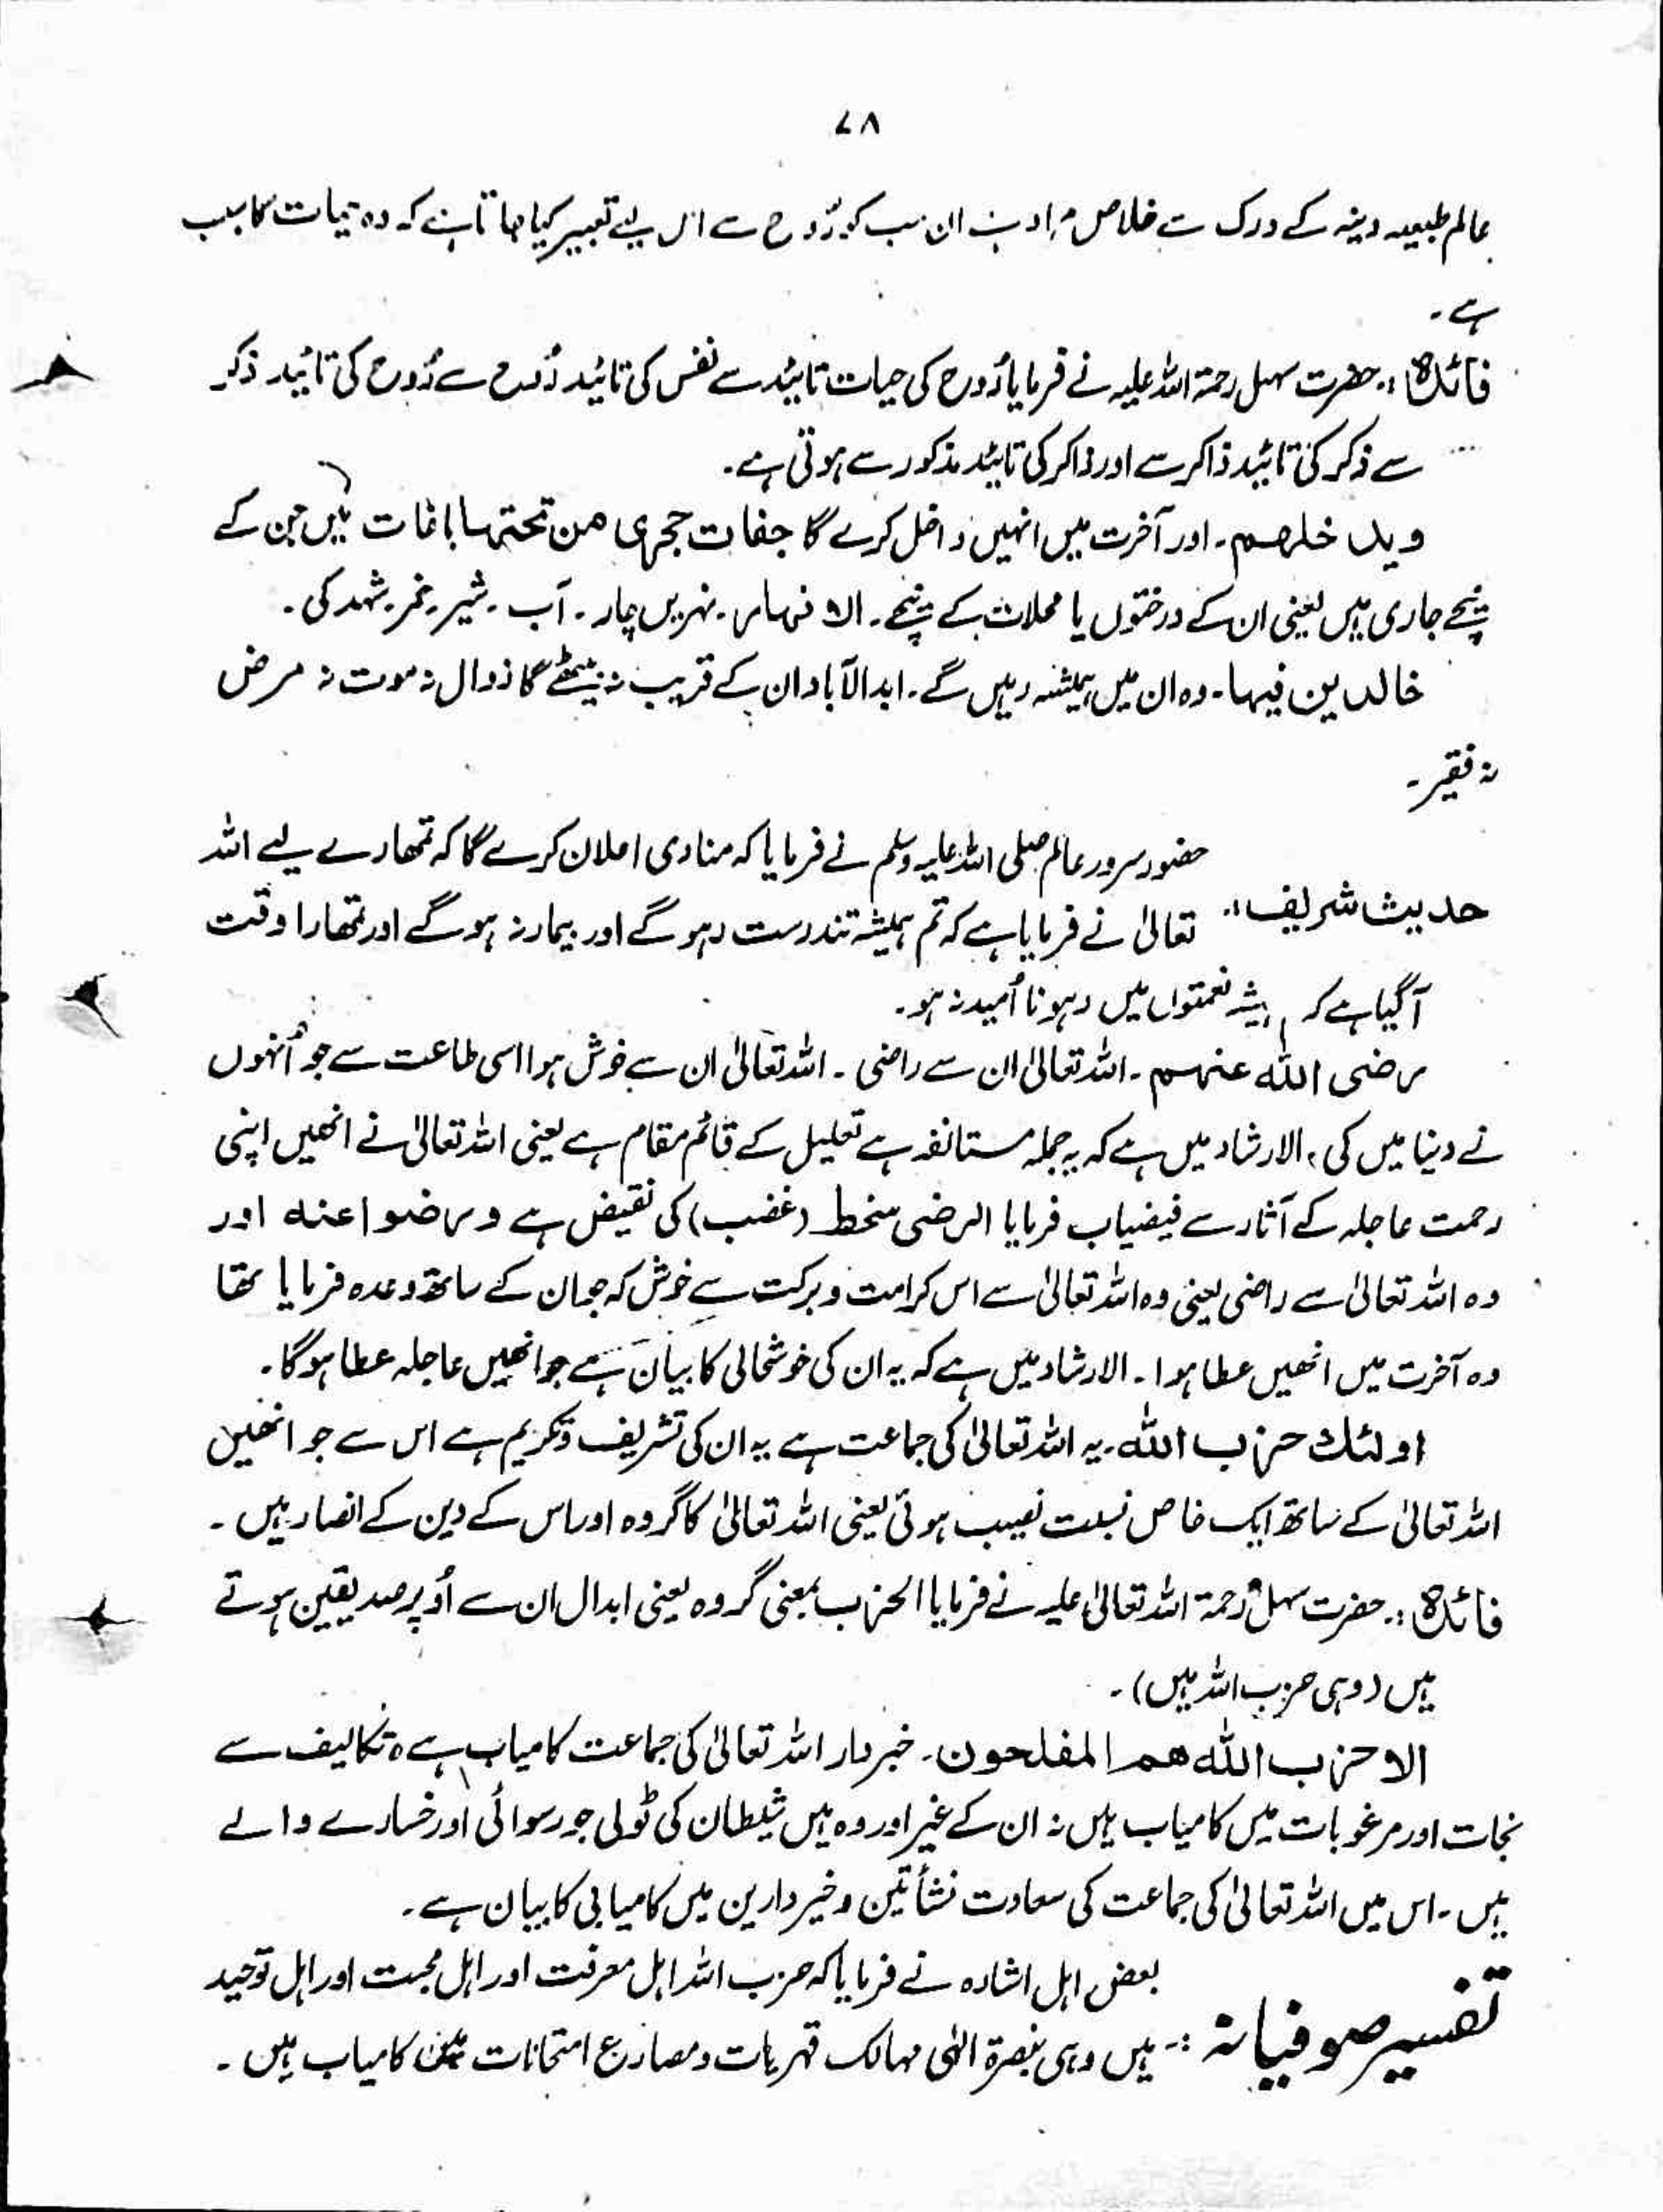 ۷۸
عالم طبیعیہ دینہ کے درک سے خلاص مراد ہے ان سب کو رُوح سے اس لیے تعبیر کیا جاتا ہے کہ وہ حیات کا سبب
ہے۔
فائدہ : حضرت سہل رحمۃ اللہ علیہ نے فرمایا رُوح کی حیات تائید سے نفس کی تائید رُوح سے رُوح کی تائید ذکر
سے ذکر کی تائید ذاکر سے اور ذاکر کی تائید مذکور سے ہوتی ہے۔
ویدخلھم۔ اور آخرت میں انہیں داخل کرے گا جنات تجری من تحتہا باغات میں جن کے
نیچے جاری ہیں یعنی ان کے درختوں یا محلات کے نیچے۔ الانھار۔ نہریں چار۔ آب۔ شیر۔ خمر۔ شہد کی۔
خالدین فیہا۔ وہ ان میں ہمیشہ رہیں گے۔ ابدالآباد ان کے قریب نہ بیٹھے گا زوال نہ موت نہ مرض
نہ فقیر۔
حضور سرور عالم صلی اللہ علیہ وسلم نے فرمایا کہ منادی اعلان کرے گا کہ تمھارے لیے اللہ
حدیث شریف : تعالیٰ نے فرمایا ہے کہ تم ہمیشہ تندرست رہو گے اور بیمار نہ ہو گے اور تمھارا وقت
آگیا ہے کہ ہمیشہ نعمتوں میں رہو نا اُمید نہ ہو۔
رضی اللہ عنہم۔ اللہ تعالیٰ ان سے راضی۔ اللہ تعالیٰ ان سے خوش ہوا اسی طاعت سے جو اُنہوں
نے دنیا میں کی، الارشاد میں ہے کہ یہ جملہ مستانفہ ہے تعلیل کے قائم مقام ہے یعنی اللہ تعالیٰ نے انھیں اپنی
رحمت عاجلہ کے آثار سے فیضیاب فرمایا الرضی سخط (غضب) کی نقیض ہے ورضوا عنہ اور
وہ اللہ تعالیٰ سے راضی یعنی وہ اللہ تعالیٰ سے اس کرامت و برکت سے خوش کہ جو ان کے ساتھ وعدہ فرمایا تھا
وہ آخرت میں انھیں عطا ہوا۔ الارشاد میں ہے کہ یہ ان کی خوشحالی کا بیان ہے جو انھیں عاجلہ عطا ہو گا۔
اولئک حزب اللہ۔ یہ اللہ تعالیٰ کی جماعت ہے یہ ان کی تشریف و تکریم ہے اس سے جو انھیں
اللہ تعالیٰ کے ساتھ ایک خاص نسبت نصیب ہوئی یعنی اللہ تعالیٰ کا گروہ اور اس کے دین کے انصار ہیں۔
فائدہ : حضرت سہل رحمۃ اللہ تعالیٰ علیہ نے فرمایا الحزب بمعنی گروہ یعنی ابدال ان سے اُوپر صدیقین ہوتے
ہیں (وہی حزب اللہ ہیں)۔
الا حزب اللہ ھم المفلحون۔ خبردار اللہ تعالیٰ کی جماعت کامیاب ہے ہ تکالیف سے
نجات اور مرغوبات میں کامیاب ہیں نہ ان کے غیر اور وہ ہیں شیطان کی ٹولی جو رسوائی اور خسارے والے
ہیں۔ اس میں اللہ تعالیٰ کی جماعت کی سعادت نشأتین و خیر دارین میں کامیابی کا بیان ہے۔
بعض اہل اشارہ نے فرمایا کہ حزب اللہ اہل معرفت اور اہل محبت اور اہل توحید
تفسیر صوفیانہ :- ہیں وہی بنصرۃ الٰہی مہالک قہریات و مصارع امتحانات میں کامیاب ہیں۔